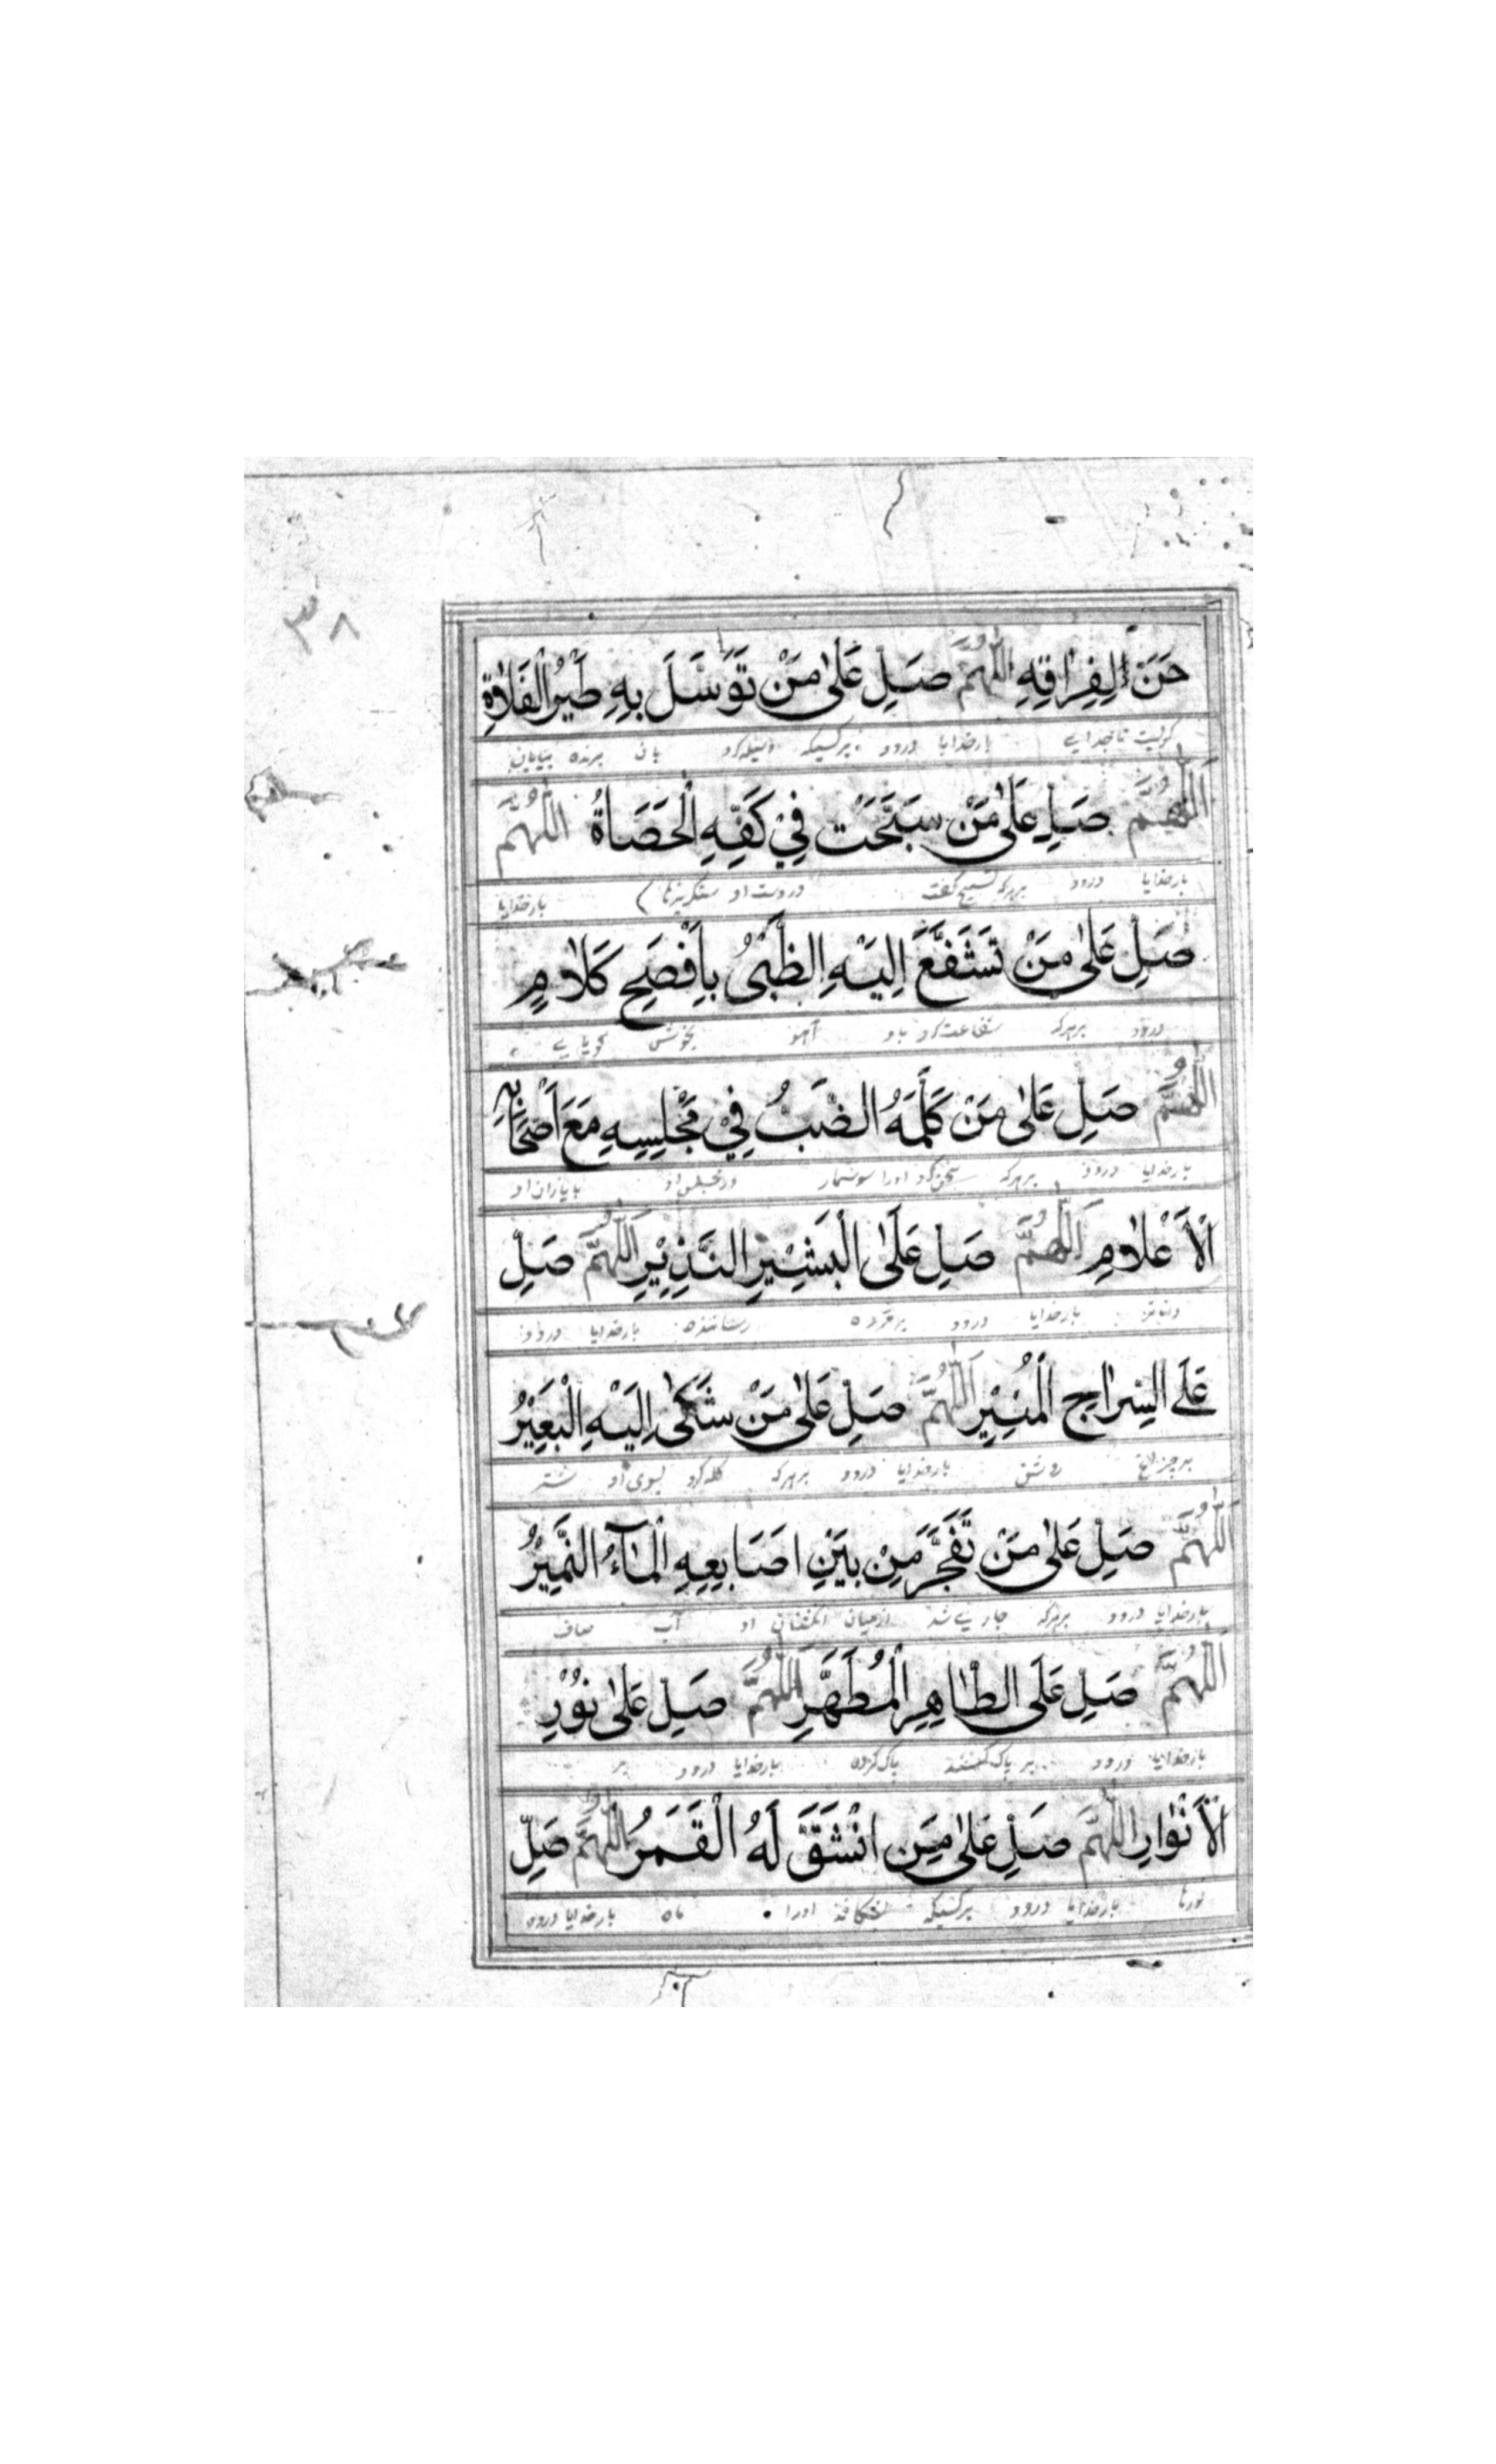 ٣٨
حَنَّ لِفِرَاقِهِ اللّٰهُمَّ صَلِّ عَلٰى مَنْ تَوَسَّلَ بِهِ طَيْرُ الْفَلَاةِ
بارخدایا درود بر کسیکه وسیله کرد بآن پرنده بیابان
اَللّٰهُمَّ صَلِّ عَلٰى مَنْ سَبَّحَتْ فِيْ كَفِّهِ الْحَصَاةُ اَللّٰهُمَّ
بارخدایا درود بر هرکه تسبیح گفت در دست او سنگریزها بارخدایا
صَلِّ عَلٰى مَنْ تَشَفَّعَ اِلَيْهِ الظَّبْىُ بِاَفْصَحِ كَلَامٍ
درود بر هرکه شفاعت کرد باو آهو
اَللّٰهُمَّ صَلِّ عَلٰى مَنْ كَلَّمَهُ الضَّبُّ فِيْ مَجْلِسِهِ مَعَ اَصْحَابِهِ
بارخدایا درود بر هرکه سخن کرد اورا سوسمار در مجلس او با یاران او
الْاَعْلَامِ اَللّٰهُمَّ صَلِّ عَلَى الْبَشِيْرِ النَّذِيْرِ اَللّٰهُمَّ صَلِّ
بارخدایا درود بر مژده رساننده بارخدایا درود
عَلَى السِّرَاجِ الْمُنِيْرِ اَللّٰهُمَّ صَلِّ عَلٰى مَنْ شَكٰى اِلَيْهِ الْبَعِيْرُ
بر چراغ روشن بارخدایا درود بر هرکه گله کرد بسوی او شتر
اَللّٰهُمَّ صَلِّ عَلٰى مَنْ تَفَجَّرَ مِنْ بَيْنِ اَصَابِعِهِ الْمَآءُ النَّمِيْرُ
بارخدایا درود بر هرکه جاری شد از میان انگشتان او آب صاف
اَللّٰهُمَّ صَلِّ عَلَى الطَّاهِرِ الْمُطَهَّرِ اَللّٰهُمَّ صَلِّ عَلٰى نُوْرِ
بارخدایا درود بر پاک کننده پاک کرده بارخدایا درود بر
الْاَنْوَارِ اَللّٰهُمَّ صَلِّ عَلٰى مَنِ انْشَقَّ لَهُ الْقَمَرُ اَللّٰهُمَّ صَلِّ
نورها بارخدایا درود بر کسیکه اورا ماه بارخدایا درود